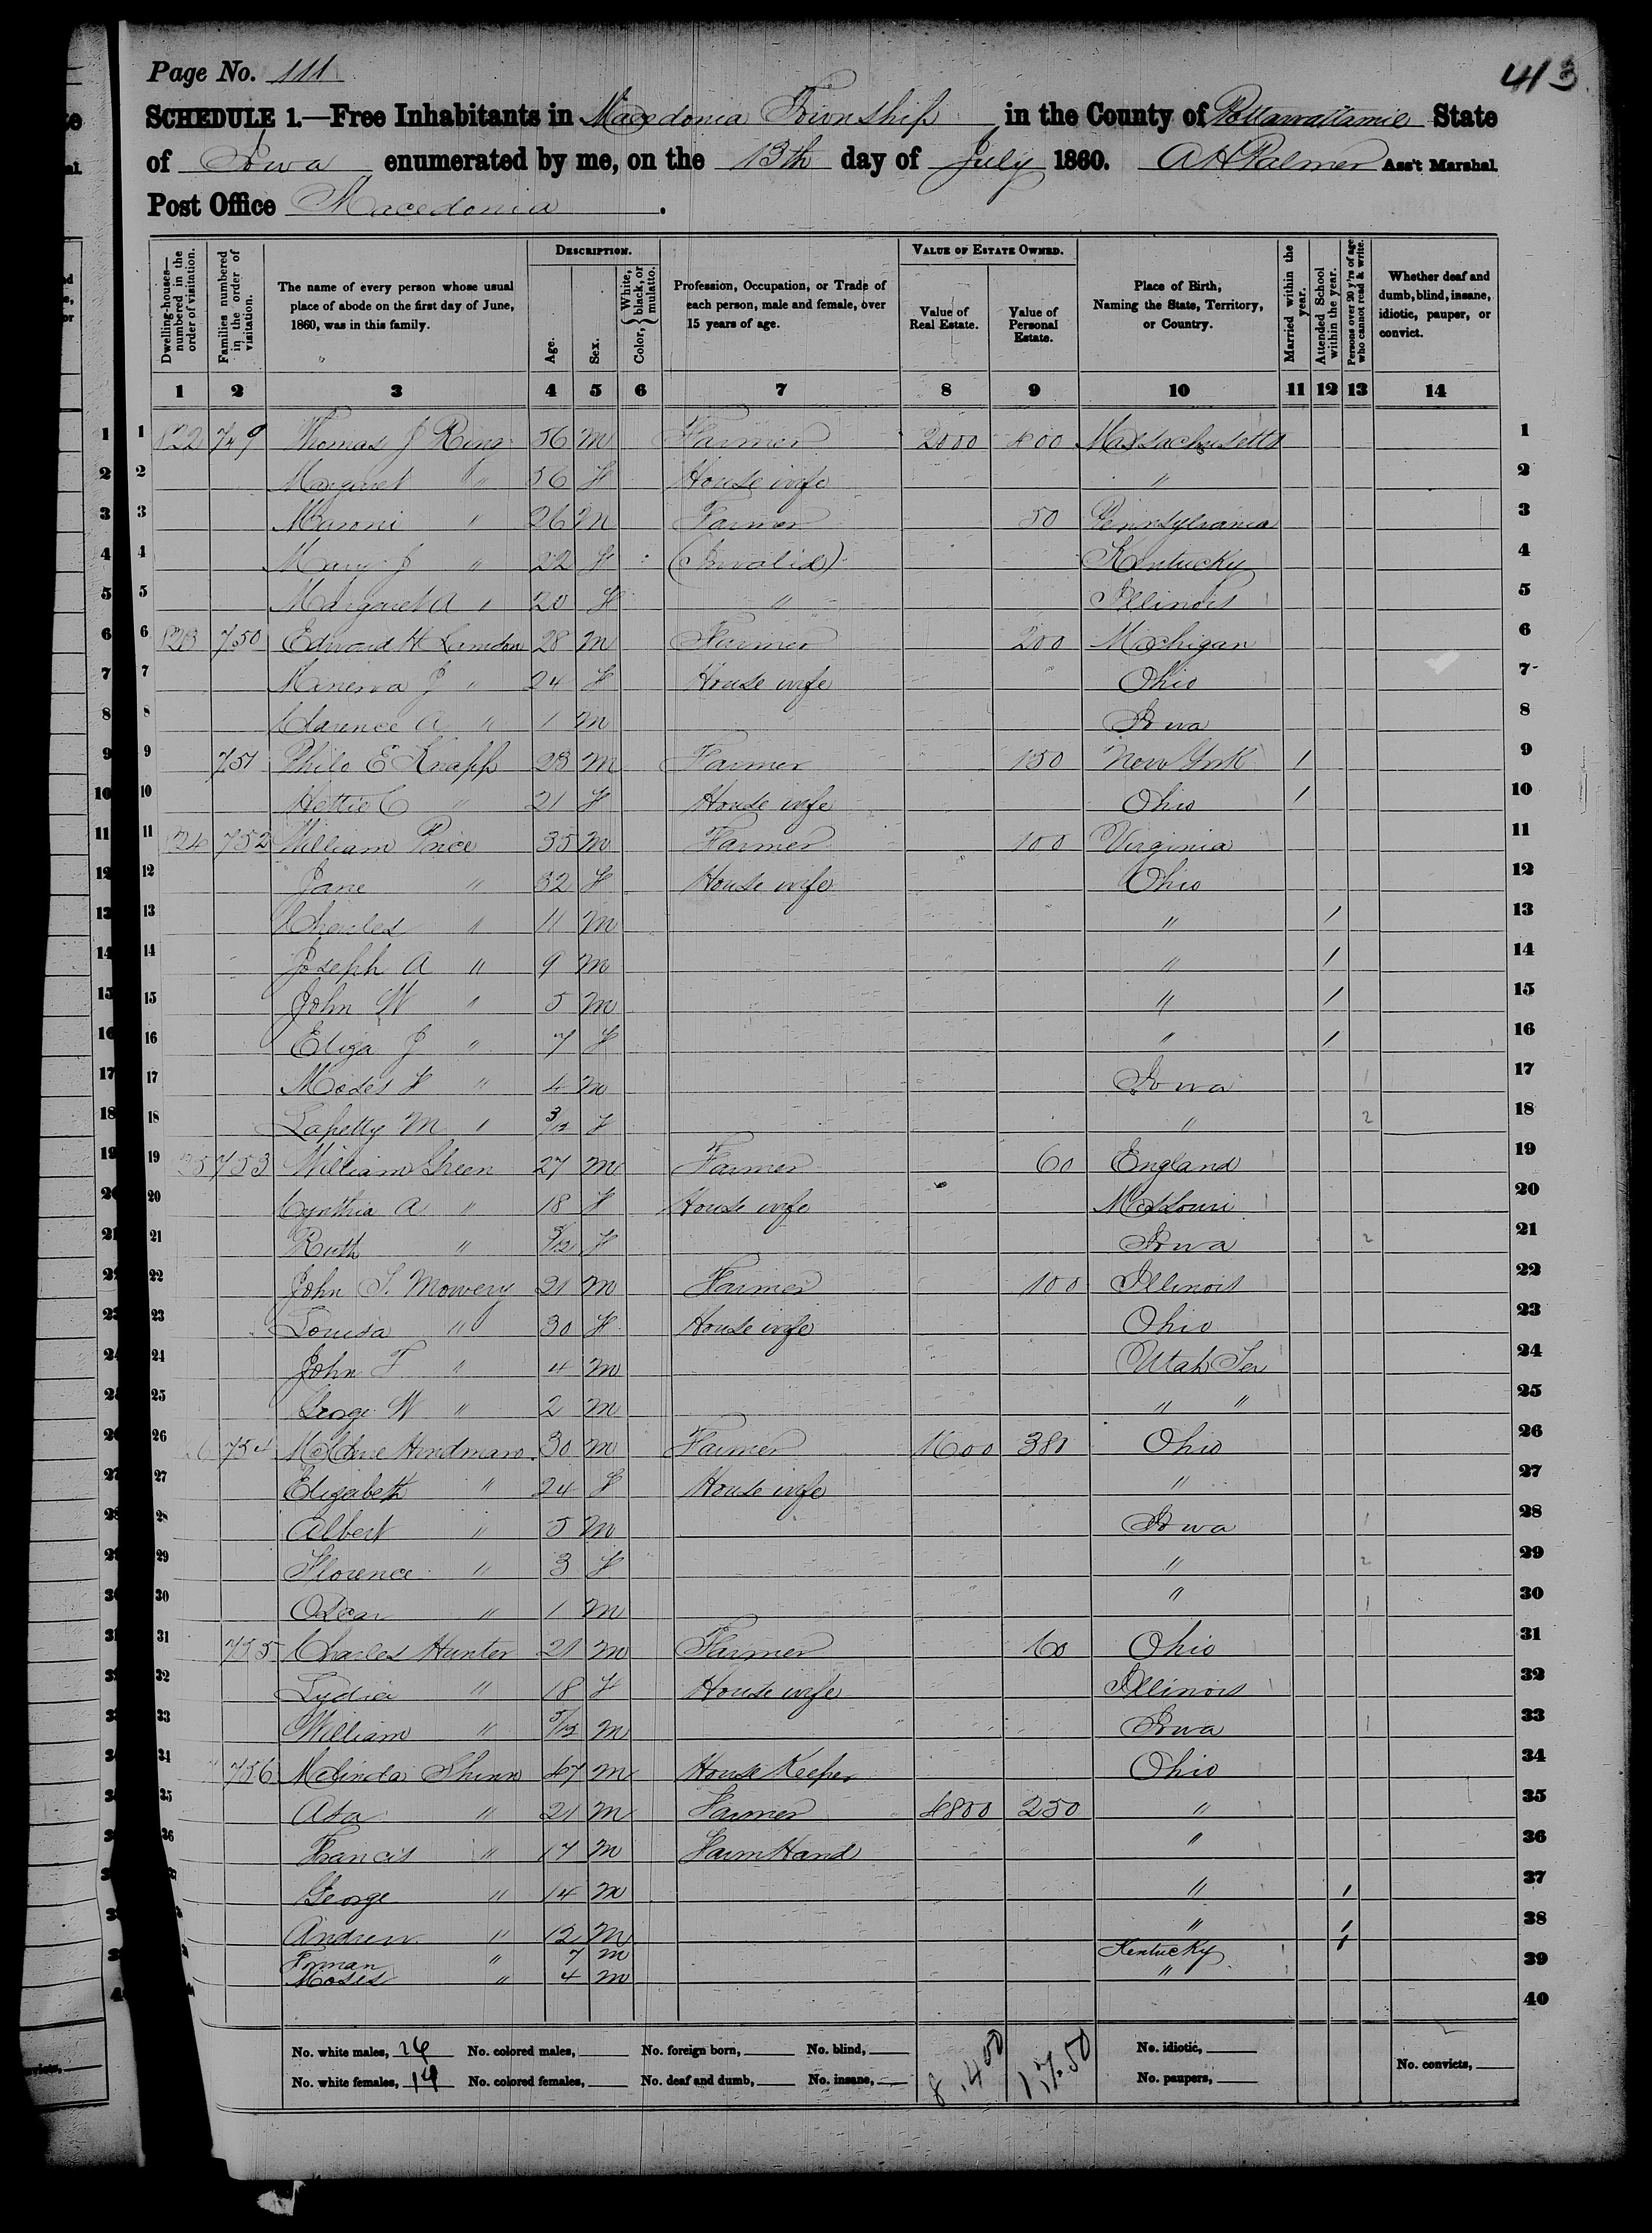 Page No. 111
413
SCHEDULE 1.—Free Inhabitants in Macedonia Township in the County of Pottawattamie State
of Iowa enumerated by me, on the 13th day of July 1860. A H Palmer Ass't Marshal.
Post Office Macedonia.
Dwelling-houses—numbered in the order of visitation.
Families numbered in the order of visitation.
The name of every person whose usual place of abode on the first day of June, 1860, was in this family.
DESCRIPTION.
Age.
Sex.
Color, White, black, or mulatto.
Profession, Occupation, or Trade of each person, male and female, over 15 years of age.
VALUE OF ESTATE OWNED.
Value of Real Estate.
Value of Personal Estate.
Place of Birth, Naming the State, Territory, or Country.
Married within the year.
Attended School within the year.
Persons over 20 y'rs of age who cannot read & write.
Whether deaf and dumb, blind, insane, idiotic, pauper, or convict.
1 2 3 4 5 6 7 8 9 10 11 12 13 14
1 822 749 Thomas J Ring 56 m Farmer 2000 400 Massachusetts 1
2 Margaret " 56 f House wife " 2
3 Maroni " 26 m Farmer 50 Pennsylvania 3
4 Mary J " 22 f (Invalid) Kentucky 4
5 Margaret A " 20 f " Illinois 5
6 823 750 Edward H Landon 28 m Farmer 200 Michigan 6
7 Minerva J " 24 f House wife Ohio 7
8 Clarence A " 1 m Iowa 8
9 751 Philo E Knapp 23 m Farmer 150 New York / 9
10 Hettie C " 21 f House wife Ohio / 10
11 24 752 William Price 35 m Farmer 100 Virginia 11
12 Jane " 32 f House wife Ohio 12
13 Charles " 11 m " / 13
14 Joseph A " 9 m " / 14
15 John W " 5 m " / 15
16 Eliza J " 7 f " / 16
17 Moses F " 4 m Iowa 1 17
18 Lapetty M " 3/12 f " 2 18
19 25 753 William Green 27 m Farmer 60 England 19
20 Cynthia A " 18 f House wife Missouri 20
21 Ruth " /12 f Iowa 2 21
22 John S. Mowery 21 m Farmer 100 Illinois 22
23 Louisa " 30 f House wife Ohio 23
24 John T " 4 m Utah Ter 24
25 George W " 2 m " " 25
26 754 McClure Hindman 30 m Farmer 1600 380 Ohio 26
27 Elizabeth " 24 f House wife " 27
28 Albert " 5 m Iowa 1 28
29 Florence " 3 f " 2 29
30 Oscar " 1 m " 1 30
31 755 Charles Hunter 21 m Farmer 60 Ohio 31
32 Lydia " 18 f House wife Illinois 32
33 William " 5/12 m Iowa 1 33
34 756 Melinda Shinn 47 m House Keeper Ohio 34
35 Asa " 21 m Farmer 4800 250 " 35
36 Francis " 17 m Farm Hand " 36
George " 14 m " / 37
Andrew " 12 m " / 38
Forman " 7 m Kentucky / 39
Moses " 4 m "
40
No. white males, 24 No. colored males, No. foreign born, No. blind, 8,400 1,750 No. idiotic,
No. white females, 14 No. colored females, No. deaf and dumb, No. insane, No. paupers, No. convicts,